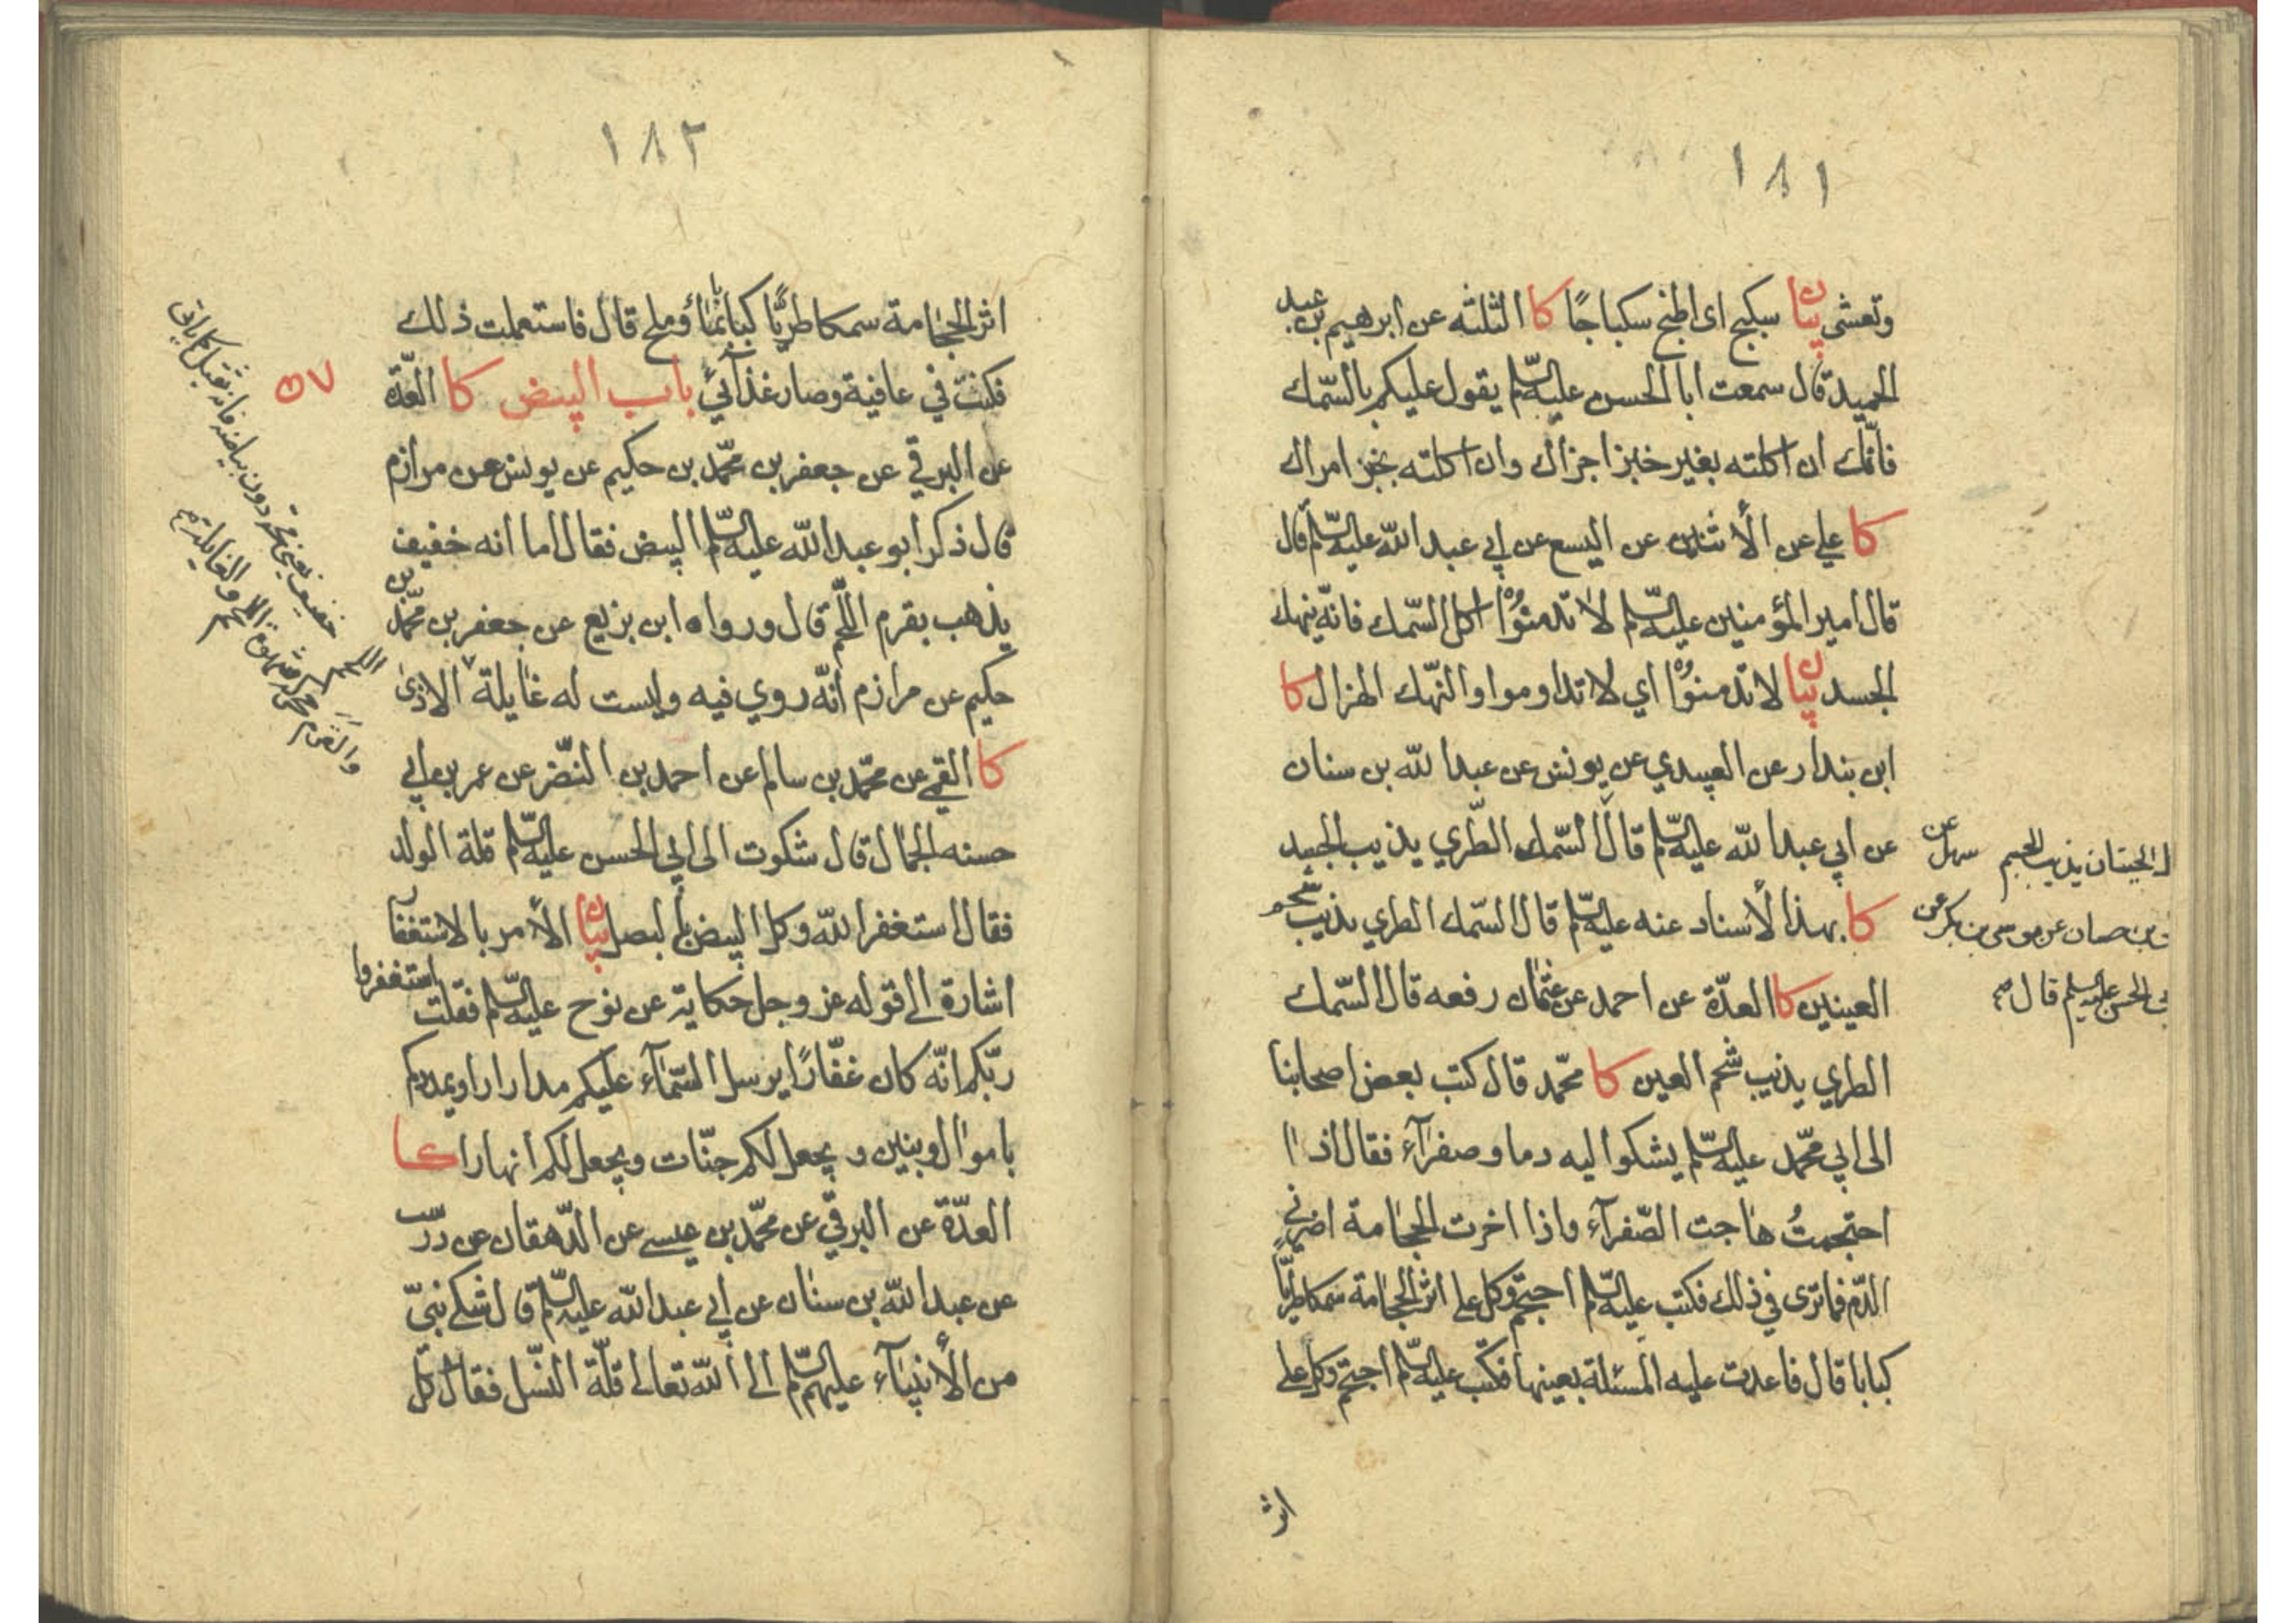 ١٨١
وتعشى بيان سبكج اى اطبخ سكباجًا كا الثلثه عن ابرهيم بن عبد
الحميد قال سمعت ابا الحسن عليه السّلم يقول عليكم بالسّمك
فانّك ان اكلته بغير خبز اجزاك وان اكلته بخبز امراك
كا علي عن الأشنين عن اليسع عن ابي عبد الله عليه السّلم قال
قال امير المؤمنين عليه السّلم لا تدمنوْا اكل السّمك فانّه ينهك
الجسد بيان لا تدمنوْا اي لا تداوموا والنّهك الهزال كا
ابن بندار عن العبيدي عن يونس عن عبد الله بن سنان
عن ابي عبد الله عليه السّلم قال السّمك الطّري يذيب الجسد
كا بهذا لأسناد عنه عليه السّلم قال السّمك الطري يذيب شحم
العينين كا العدّة عن احمد عن عثمان رفعه قال السّمك
الطري يذيب شحم العين كا محمّد قال كتب بعض اصحابنا
الى ابي محمّد عليه السّلم يشكوا ليه دما وصفرآء فقال اذا
احتجمتُ هاجت الصّفرآء واذا اخرت الحجامة اضرّني
الدّم فما ترى في ذلك فكتب عليه السّلم احتجم وكل على اثر الحجامة سمكا طريّا
كبابا قال فاعدت عليه المسئلة بعينها فكتب عليه السّلم احتجم وكل على
اثر
الحيتان يذيب الجسم سهل عن
بن حسان عن موسى بن بكر عن
ابي الحسن عليه السلم قال
١٨٢
اثر الحجامة سمكا طريًّا كبابا بماء وملح قال فاستعملت ذلك
فكنت في عافية وصار غذآئي باب البيض كا العدّة
٥٧
عن البرقي عن جعفر بن محمّد بن حكيم عن يونس عن مرازم
قال ذكر ابو عبد الله عليه السّلم البيض فقال اما انه خفيف
يذهب بقرم اللّحم قال ورواه ابن بزيع عن جعفر بن محمّد بن
حكيم عن مرازم انّه روي فيه وليست له غايلة الاذى
كا القمي عن محمّد بن سالم عن احمد بن النّضر عن عمر بن ابي
حسنه الجمال قال شكوت الى ابي الحسن عليه السّلم قلة الولد
فقال استغفر الله وكل البيض بالبصل بيان الأمر بالاستغفار
اشارة الى قوله عز وجل حكاية عن نوح عليه السّلم فقلت استغفروا
ربّكم انّه كان غفّارًا يرسل السّمآء عليكم مدرارا ويمددكم
باموال وبنين ويجعل لكم جنّات ويجعل لكم انهارا كا
العدّة عن البرقي عن محمّد بن عيسى عن الدّهقان عن درست
عن عبد الله بن سنان عن ابي عبد الله عليه السّلم قال شكى نبيّ
من الأنبيآء عليهم السّلم الى الله تعالى قلّة النّسل فقال كل
خفيف يعني محّه دون بياضه فانه ثقيل كما ياتي
والقرم محركة شهوة اللحم والغايلة